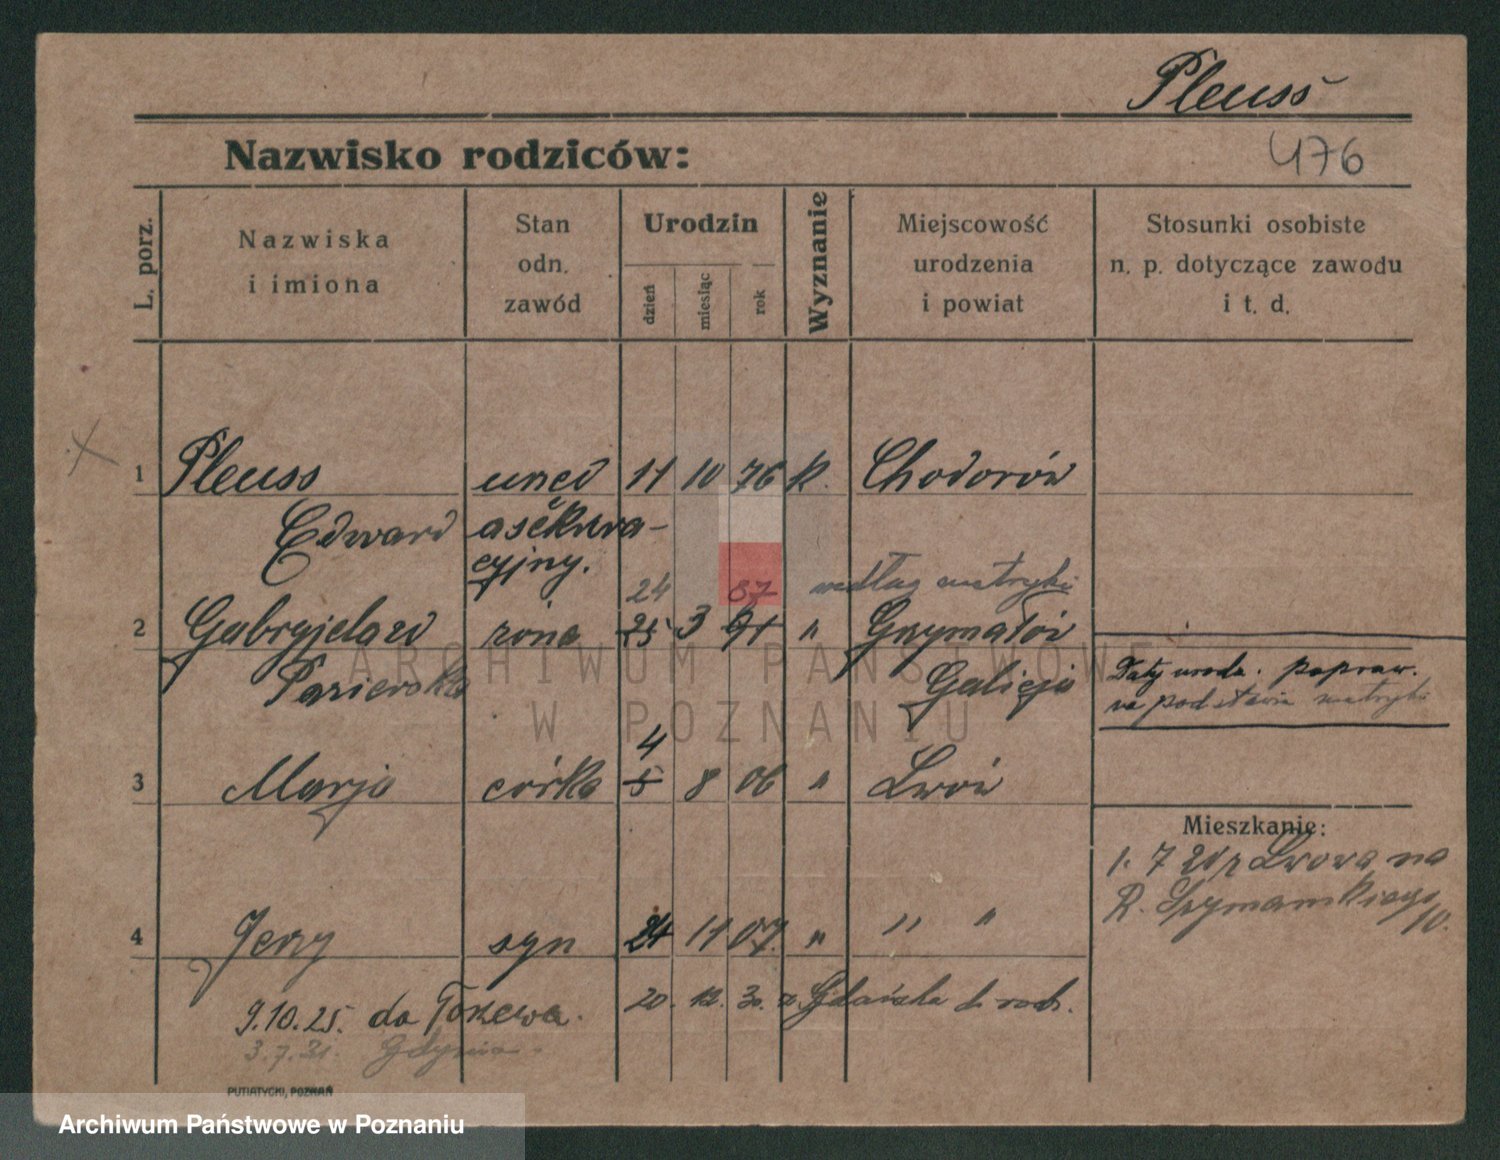 Pleuss
Nazwisko rodziców:
476
L. porz.
Nazwiska
i imiona
Stan
odn.
zawód
Urodzin
dzień
miesiąc
rok
Wyznanie
Miejscowość
urodzenia
i powiat
Stosunki osobiste
n. p. dotyczące zawodu
i t. d.
1 Pleuss urzęd 11 10 76 k. Chodorów
Edward asekura-
cyjny.
24 87 według metryki
2 Gabryjela zd żona 25 3 91 " Grzymałów
Pasierska Galicja
Daty urodz. popraw.
na podstawie metryki
4
3 Marja córka 5 8 06 " Lwów
Mieszkanie:
1. 7 21 z Lwowa na
R. Szymańskiego
10.
4 Jerzy syn 24 11 07. " " "
9.10.25. do Tczewa. 20. 12. 30. z Gdańska do rodz.
3.7.31. Gdynia.
PUTIATYCKI, POZNAŃ
ARCHIWUM PAŃSTWOW
W POZNANIU
Archiwum Państwowe w Poznaniu